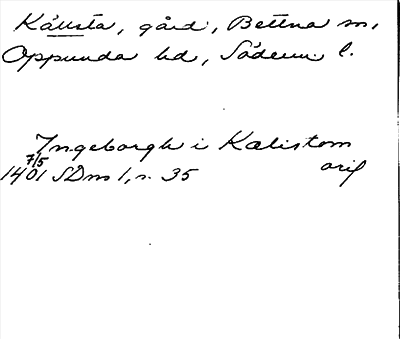 Källsta, gård, Bettna sn,
Oppunda hd, Söderm. l.
Ingeborgh i Kælistom
1401 7/5 SDns 1, n. 35 orif